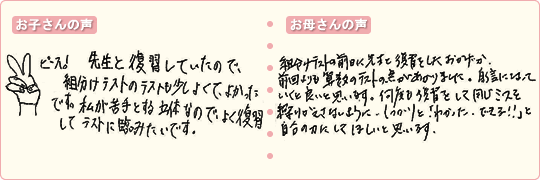 お子さんの声
ピース! 先生と復習していたので、
組分けテストのテストも少しよくて、よかった
です。私が苦手とする立体なので、よく復習
してテストに臨みたいです。
お母さんの声
組分けテストの前日に先生と復習をしたおかげか、
前回よりも算数のテストの点があがりました。自信になって
いくと良いと思います。何度も復習をして同じミスを
繰りかえさないように、しっかりと「わかった、できる!!」と
自分の力にしてほしいと思います。